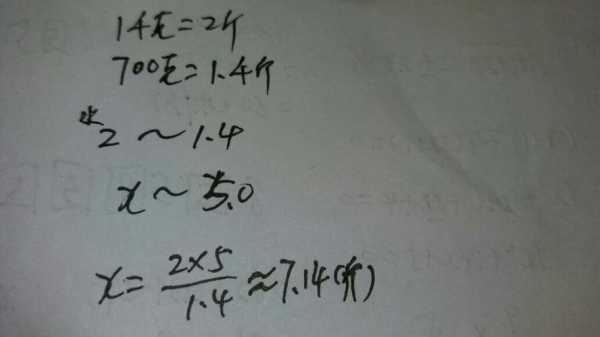 14克=2斤
700克=1.4斤
水2～1.4
x～5.0
x=2×5/1.4≈7.14(斤)